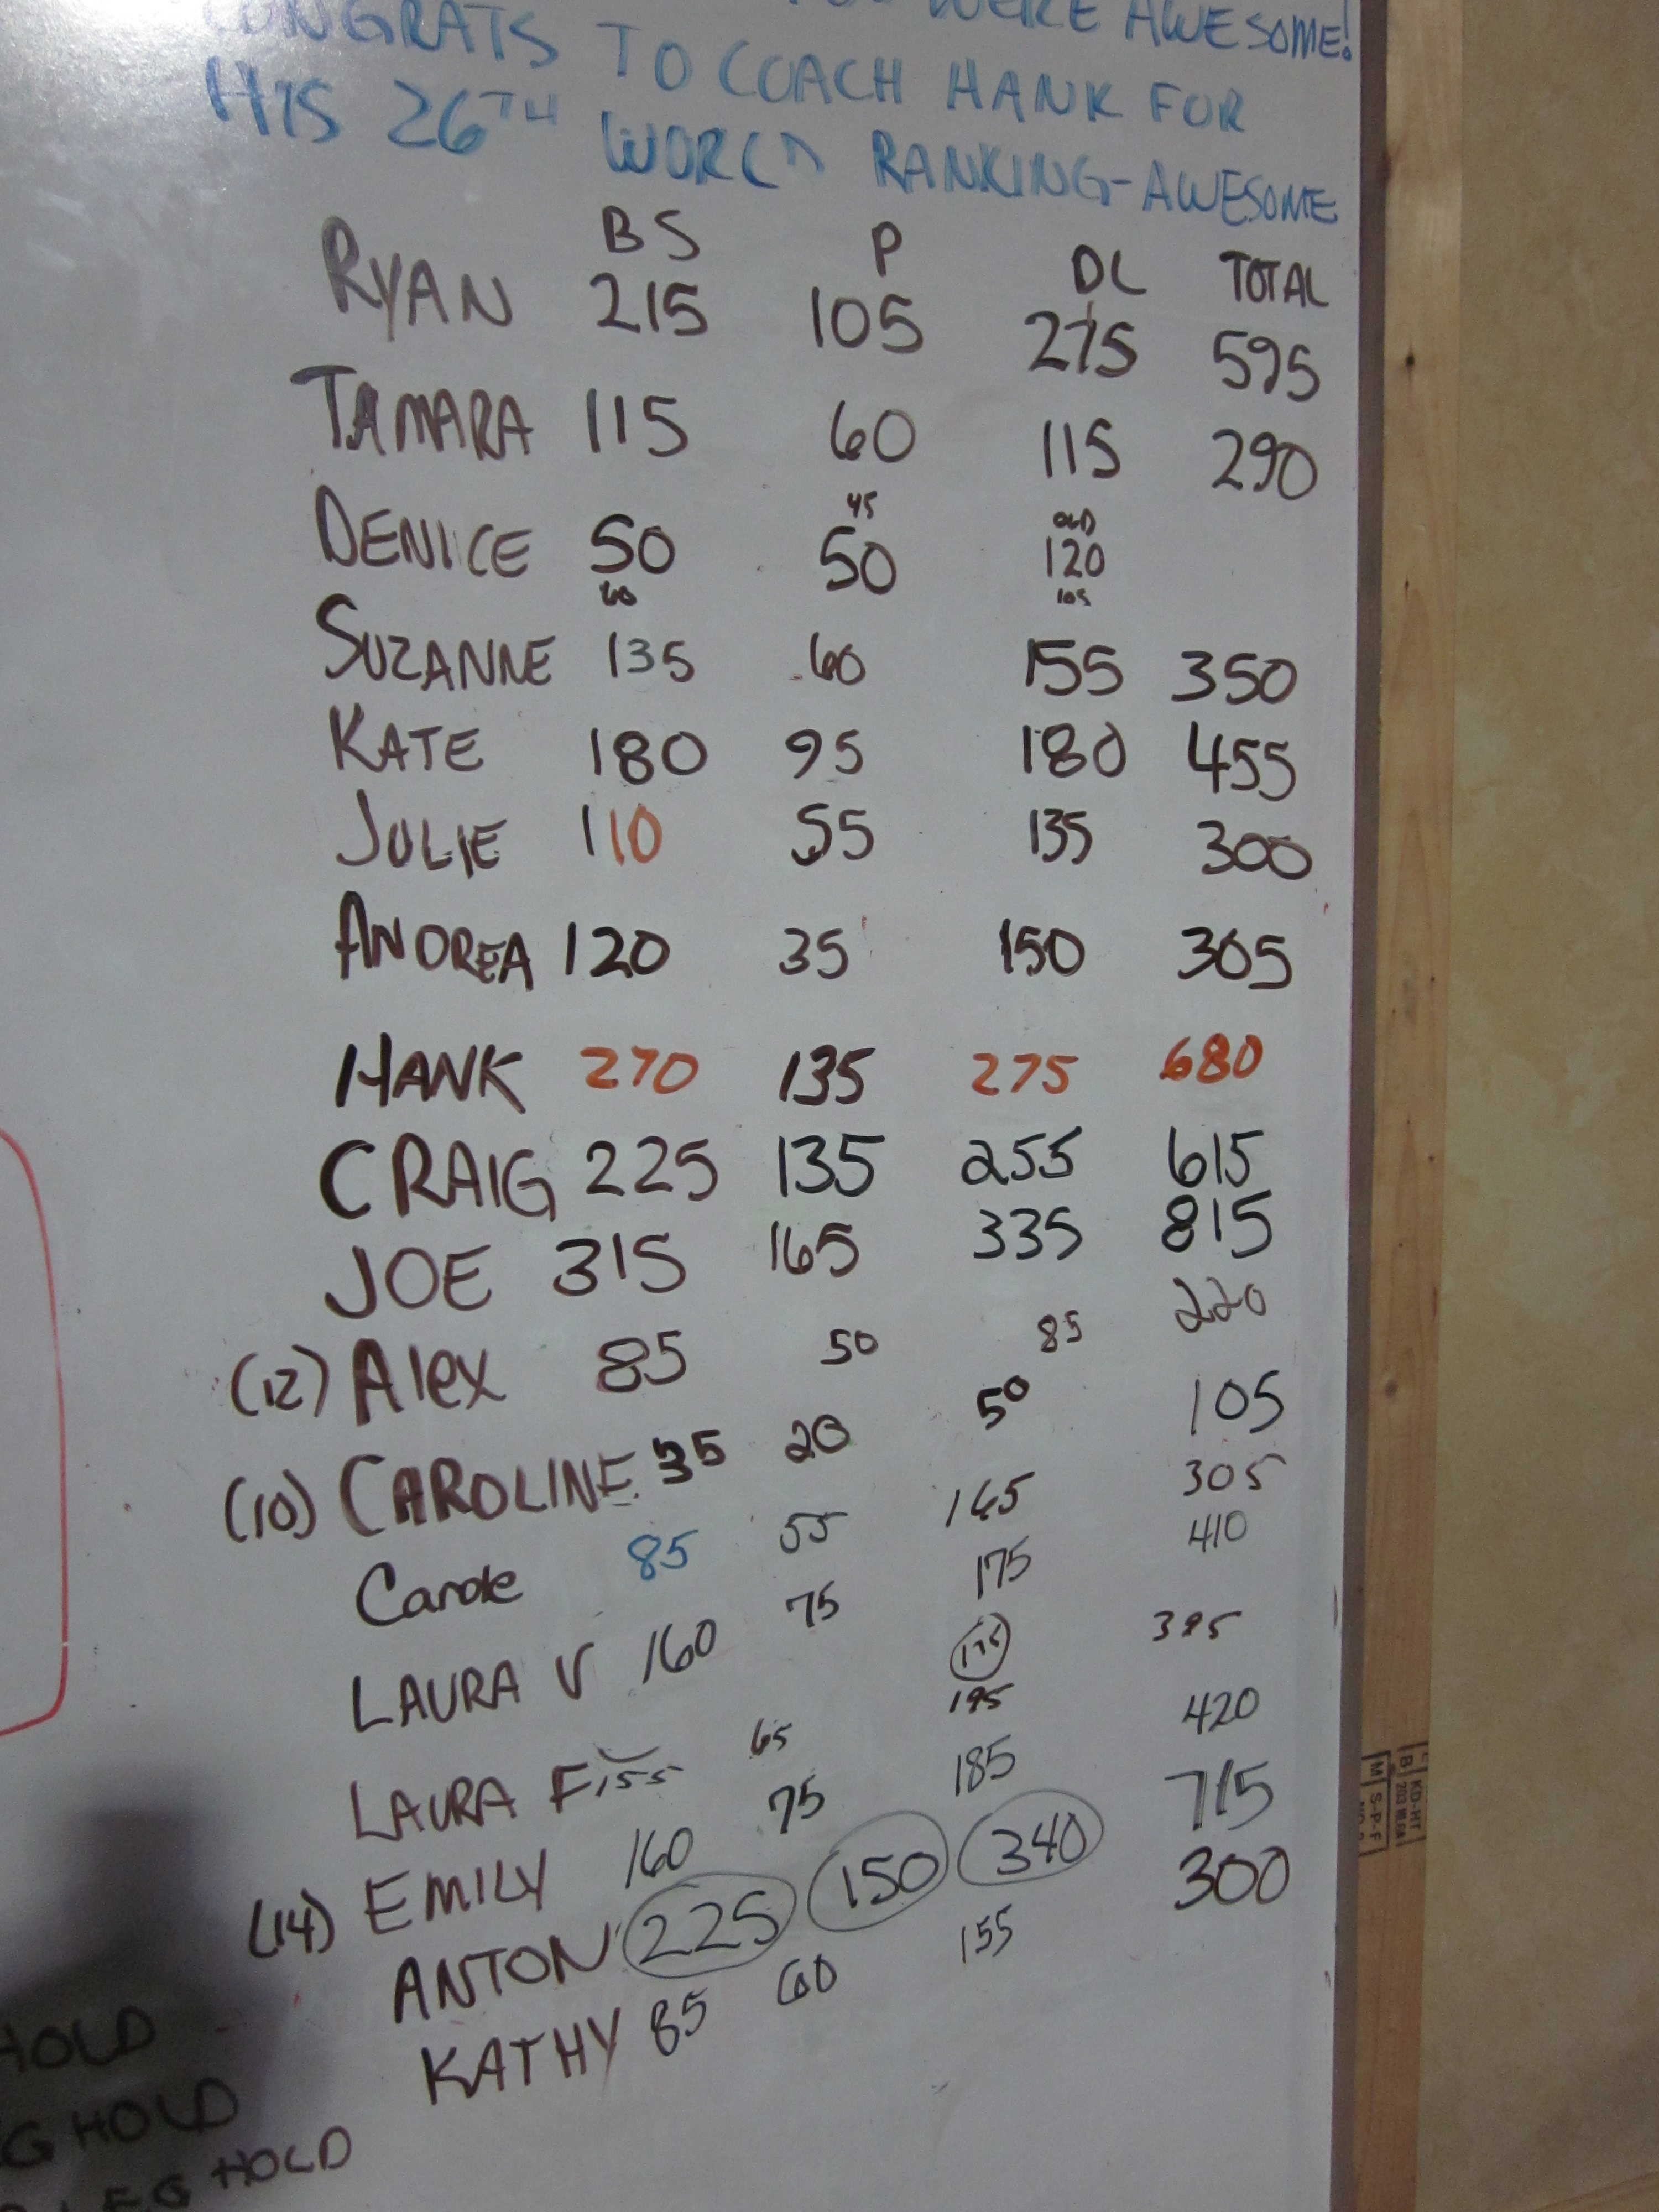 WERE AWESOME!
CONGRATS TO COACH HANK FOR
HIS 26TH WORLD RANKING-AWESOME
BS P DL TOTAL
RYAN 215 105 275 595
TAMARA 115 60 115 290
45
DENICE 50 50 120
105
SUZANNE 135 60 155 350
KATE 180 95 180 455
JULIE 110 55 135 300
ANDREA 120 35 150 305
HANK 270 135 275 680
CRAIG 225 135 255 615
JOE 315 165 335 815
(12) Alex 85 50 85 220
(10) CAROLINE 35 20 50 105
Carole 85 55 165 305
LAURA V 160 75 175 410
LAURA F 155 65 175 395
195
(14) EMILY 160 75 185 420
ANTON 225 150 340 715
KATHY 85 60 155 300
HOLD
G HOLD
LEG HOLD
KD-HT
S-P-F